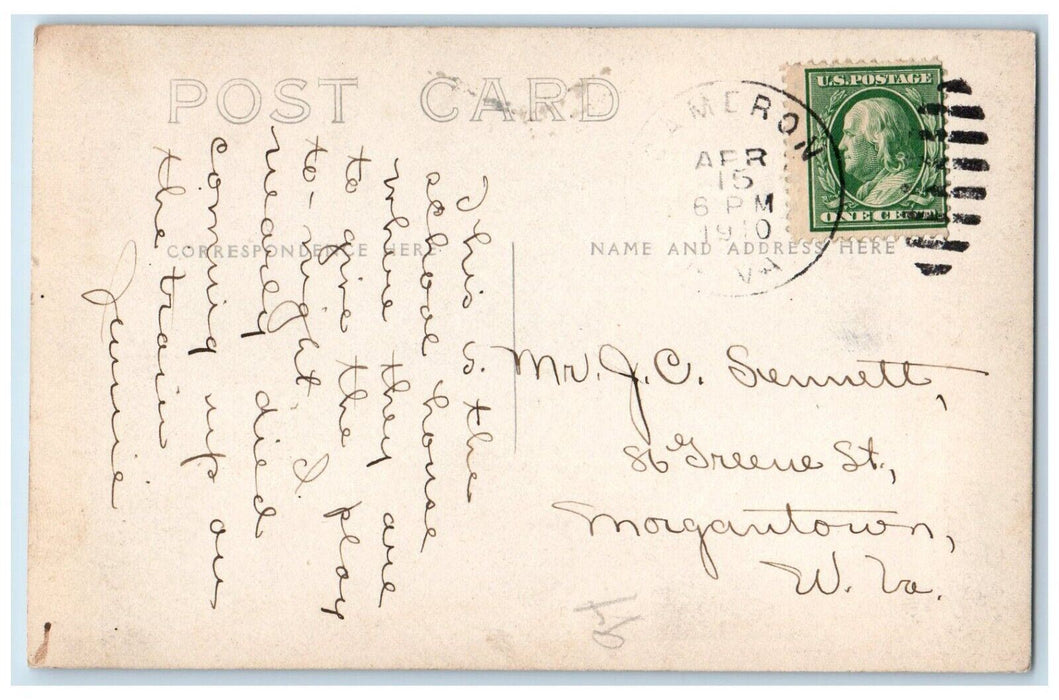 POST CARD
U.S. POSTAGE
ONE CENT
MERON
APR
15
6 PM
1910
VA
CORRESPONDENCE HERE
NAME AND ADDRESS HERE
This is the
school house
where they are
to give the play
to-night. I
nearly died
coming up on
the train
Jennie
Mr. J. C. Sennett,
86 Greene St.,
Morgantown,
W. Va.